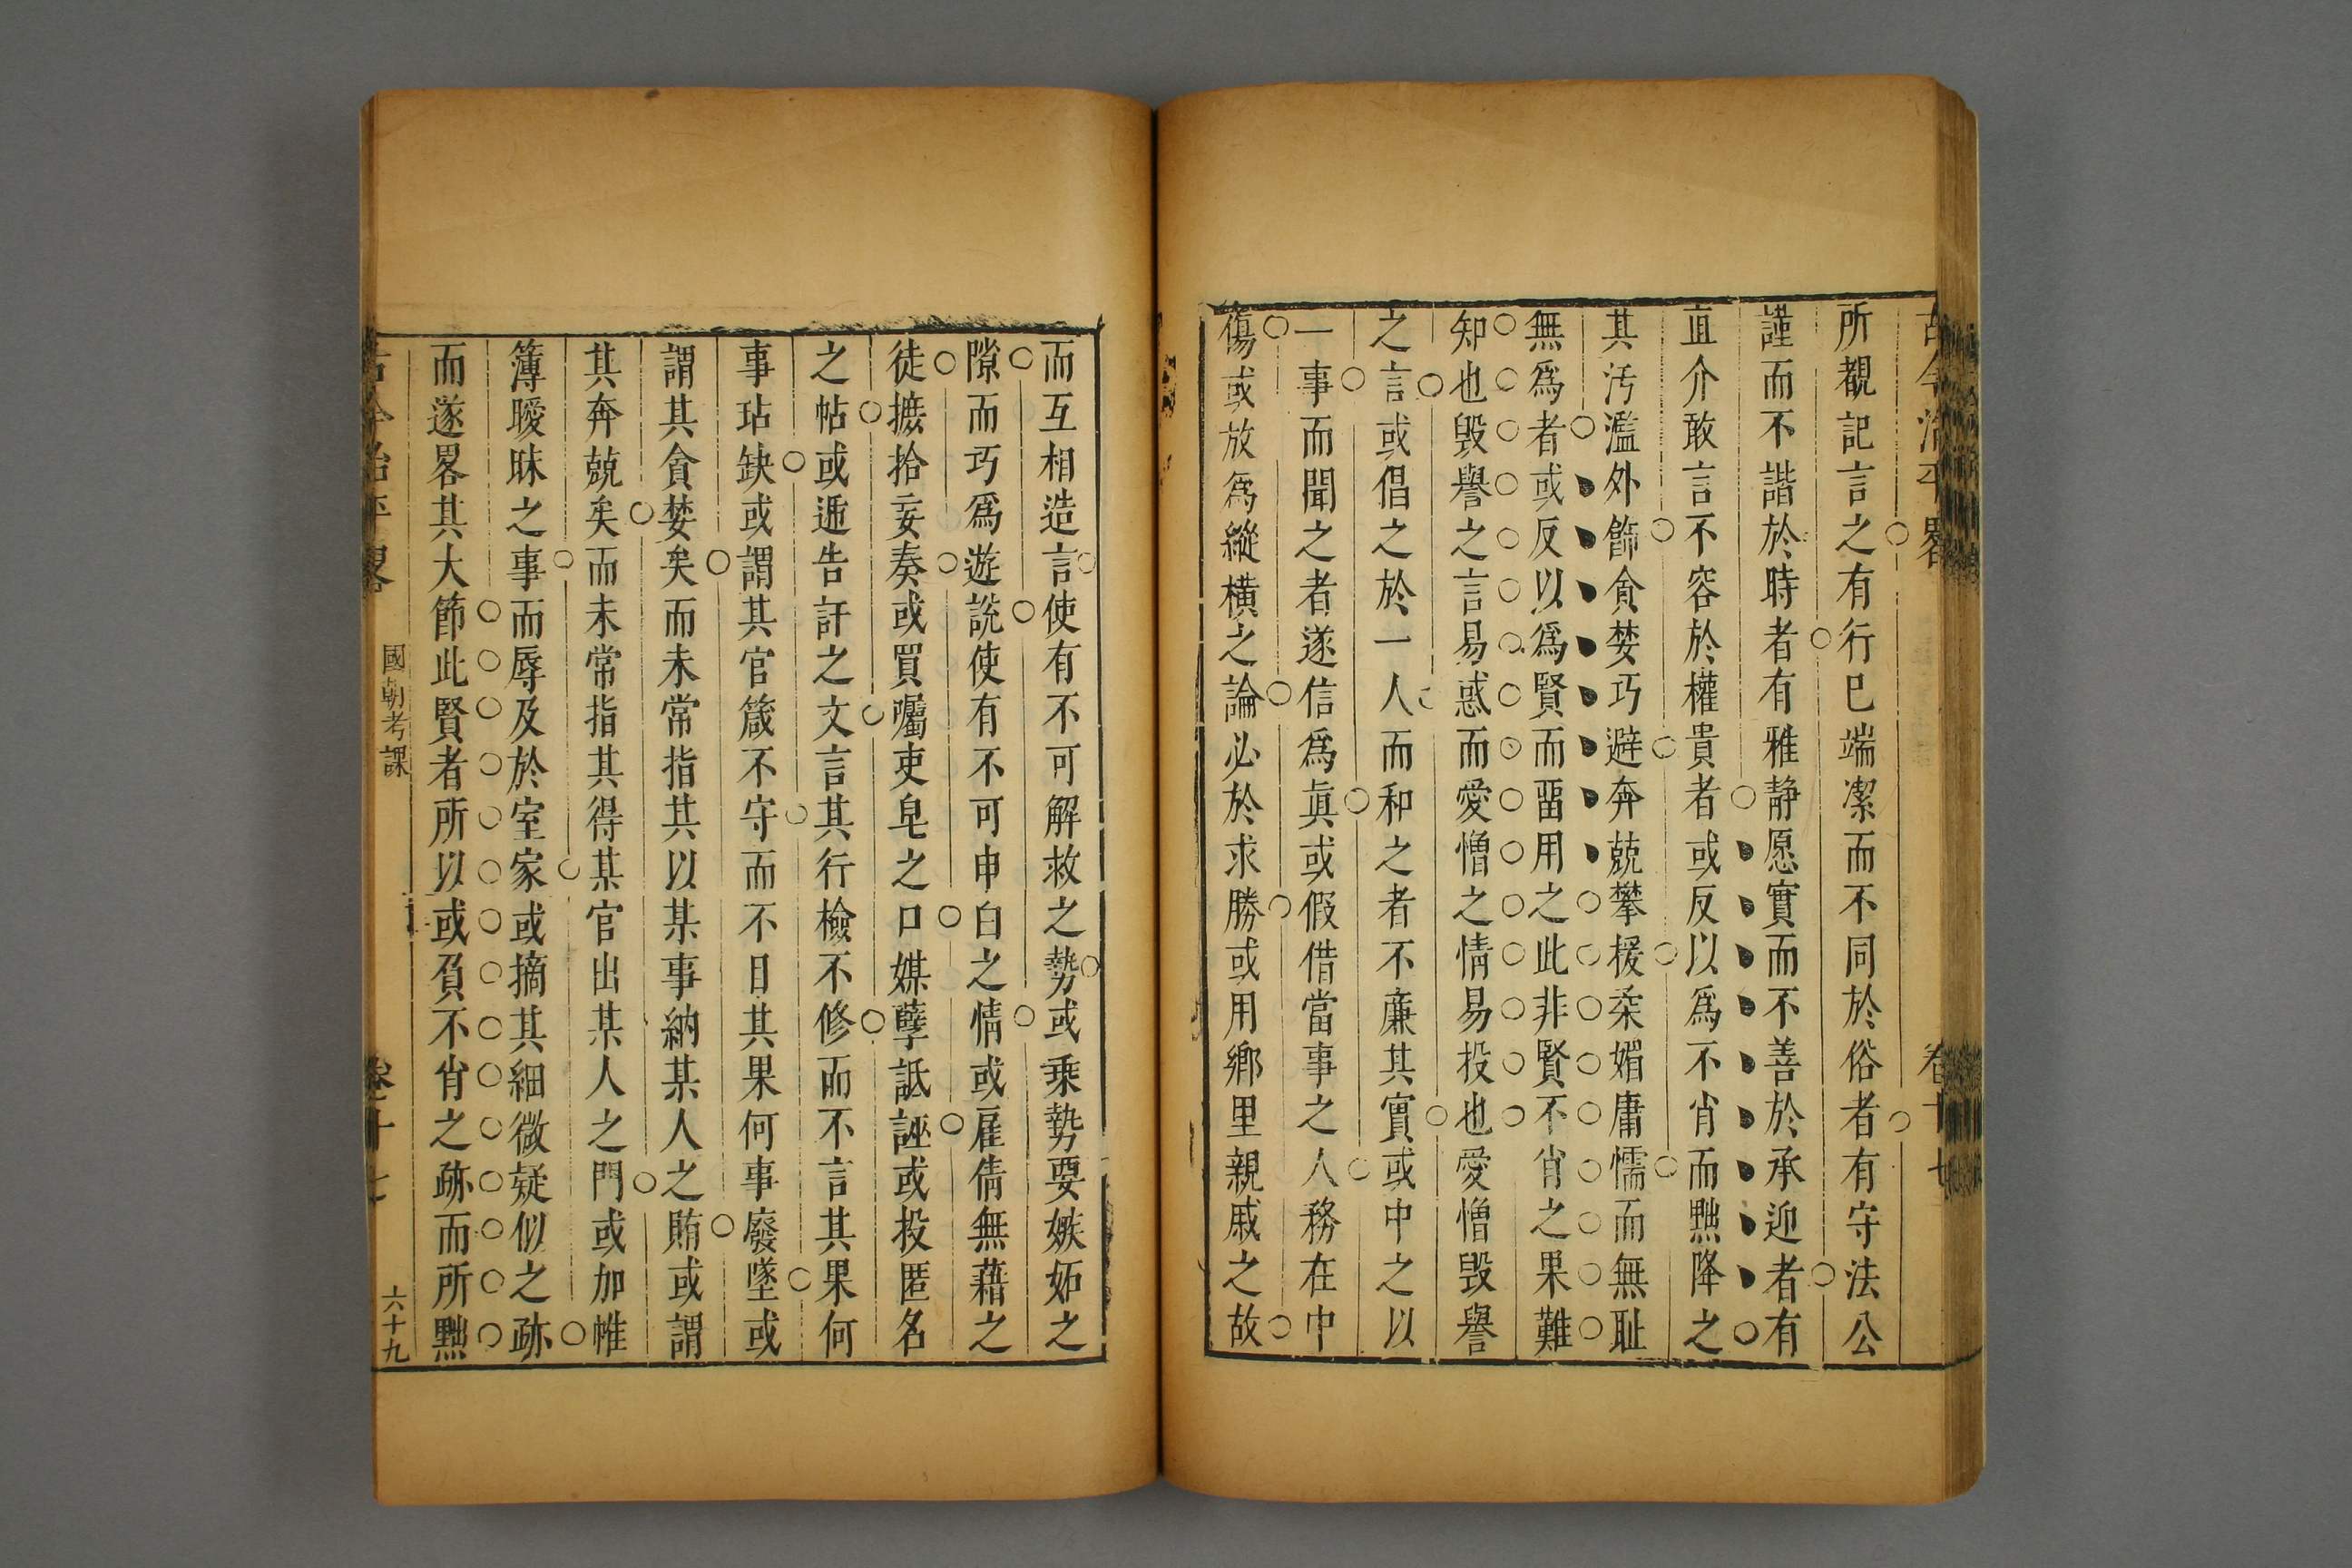 古今治平畧 卷十七
所觀記言之有行巳端潔而不同於俗者有守法公
謹而不諧於時者有雅静愿實而不善於承迎者有
直介敢言不容於權貴者或反以爲不肖而黜降之
其汚濫外飾貪婪巧避奔兢攀援柔媚庸懦而無耻
無爲者或反以爲賢而畱用之此非賢不肖之果難
知也毁譽之言易惑而愛憎之情易投也愛憎毁譽
之言或倡之於一人而和之者不廉其實或中之以
一事而聞之者遂信爲眞或假借當事之人務在中
傷或放爲縱横之論必於求勝或用鄉里親戚之故
而互相造言使有不可解救之勢或乘勢要嫉妬之
隙而巧爲遊說使有不可申白之情或雇倩無藉之
徒摭拾妄奏或買囑吏皂之口媒孽詆誣或投匿名
之帖或逓告訐之文言其行檢不修而不言其果何
事玷缺或謂其官箴不守而不日其果何事廢墜或
謂其貪婪矣而未常指其以某事納某人之賄或謂
其奔兢矣而未常指其得某官出某人之門或加帷
簿曖昧之事而辱及於室家或摘其細微疑似之跡
而遂畧其大節此賢者所以或負不肖之跡而所黜
古今治平畧 國朝考課 卷十七 六十九